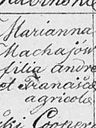 Marianna
Machajów
filia Andre
et Francisca
agricola
Cooper